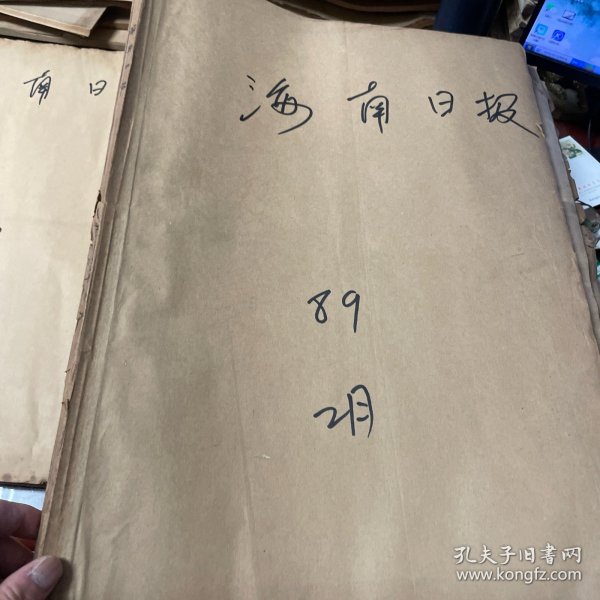 海南日报
89
2月
南日
孔夫子旧书网
www.kongfz.com